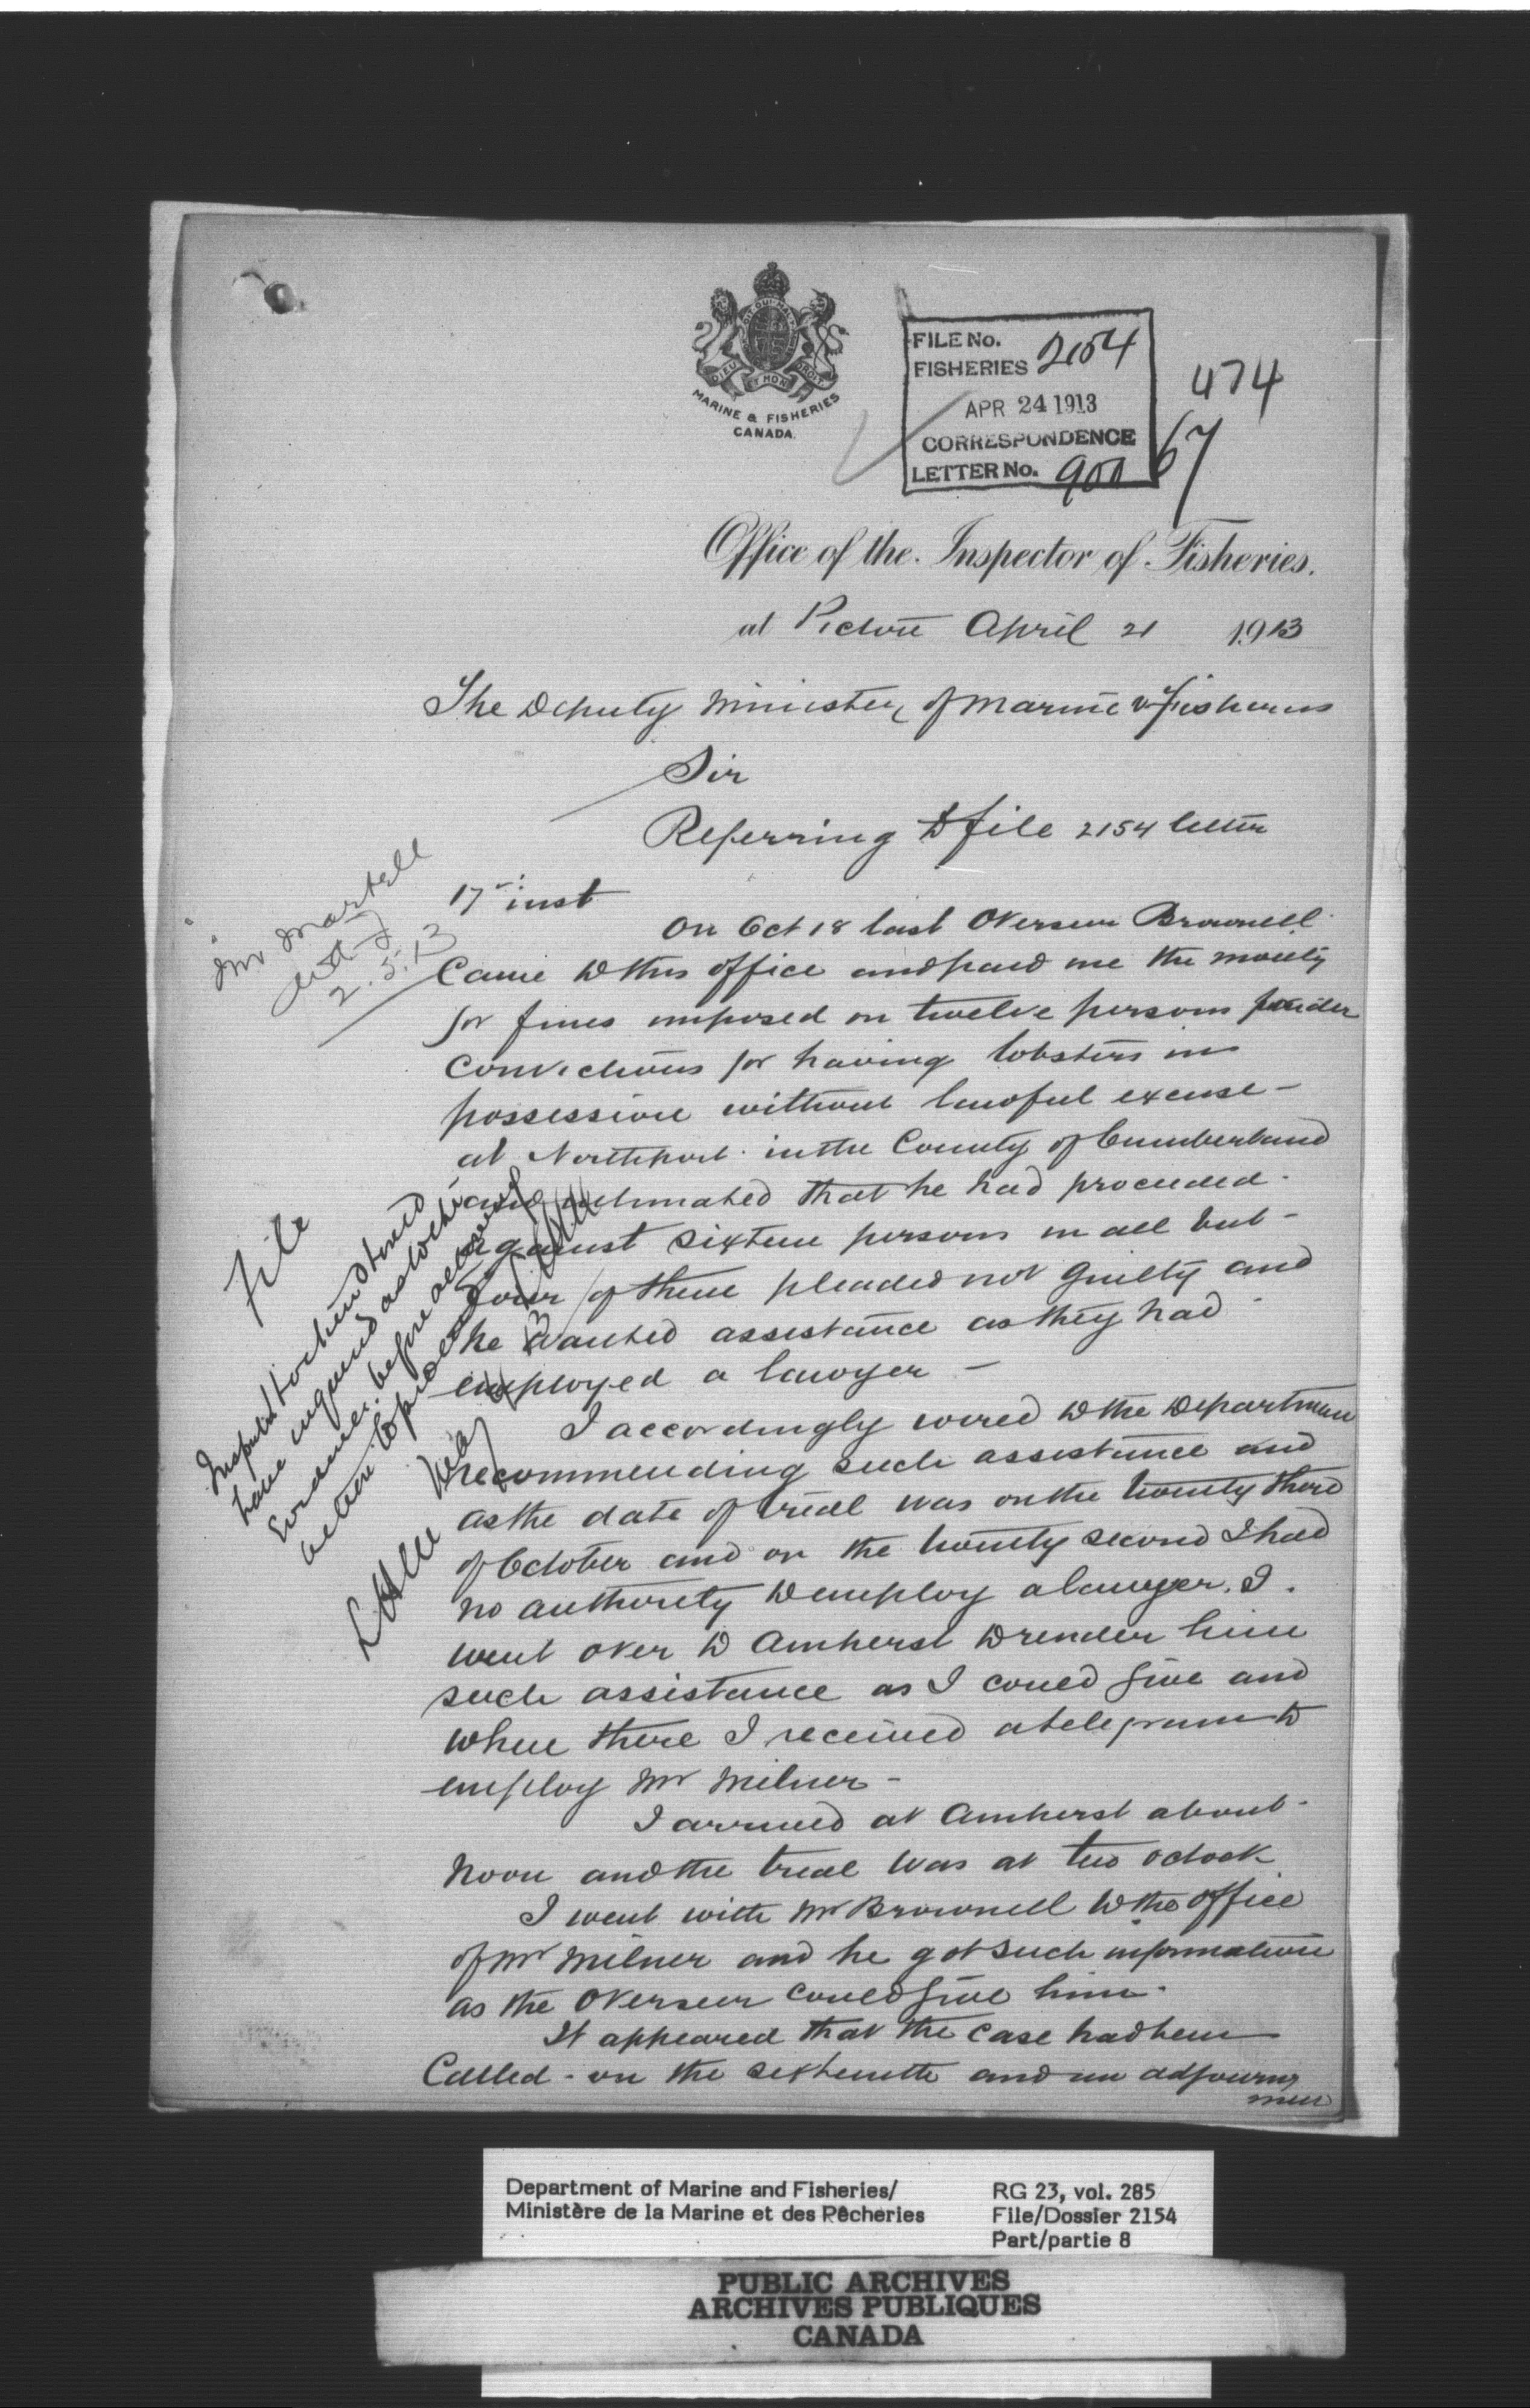 DIEU ET MON DROIT
MARINE & FISHERIES
CANADA.
FILE No.
FISHERIES 2154
APR 24 1913
CORRESPONDENCE
LETTER No. 900
474
67
Office of the Inspector of Fisheries.
at Pictou April 21 1913
The Deputy Minister of Marine & Fisheries
Sir
Referring to file 2154 letter
17th inst
On Oct 18 last Overseer Brownell
Came to this office and paid me the money
for fines imposed on twelve persons under
Convictions for having lobsters in
possession without lawful excuse -
at Northport in the County of Cumberland
and intimated that he had proceeded
against sixteen persons in all but -
four of them pleaded not guilty and
he wanted assistance as they had
employed a lawyer -
I accordingly wired to the Department
recommending such assistance and
as the date of trial was on the twenty third
of October and on the twenty second I had
no authority to employ a lawyer, I
went over to Amherst to render him
such assistance as I could give and
when there I received a telegram to
employ Mr Milner -
I arrived at Amherst about -
Noon and the trial was at two oclock
I went with Mr Brownell to the office
of Mr Milner and he got such information
as the Overseer could give him.
It appeared that the case had been
Called - on the sixteenth and an adjourn
men
Mr Martell
2.5.13
File
Inspector Hockin
have enquired as to
Evidence before
action to
Department of Marine and Fisheries/
Ministère de la Marine et des Pêcheries
RG 23, vol. 285
File/Dossier 2154
Part/partie 8
PUBLIC ARCHIVES
ARCHIVES PUBLIQUES
CANADA